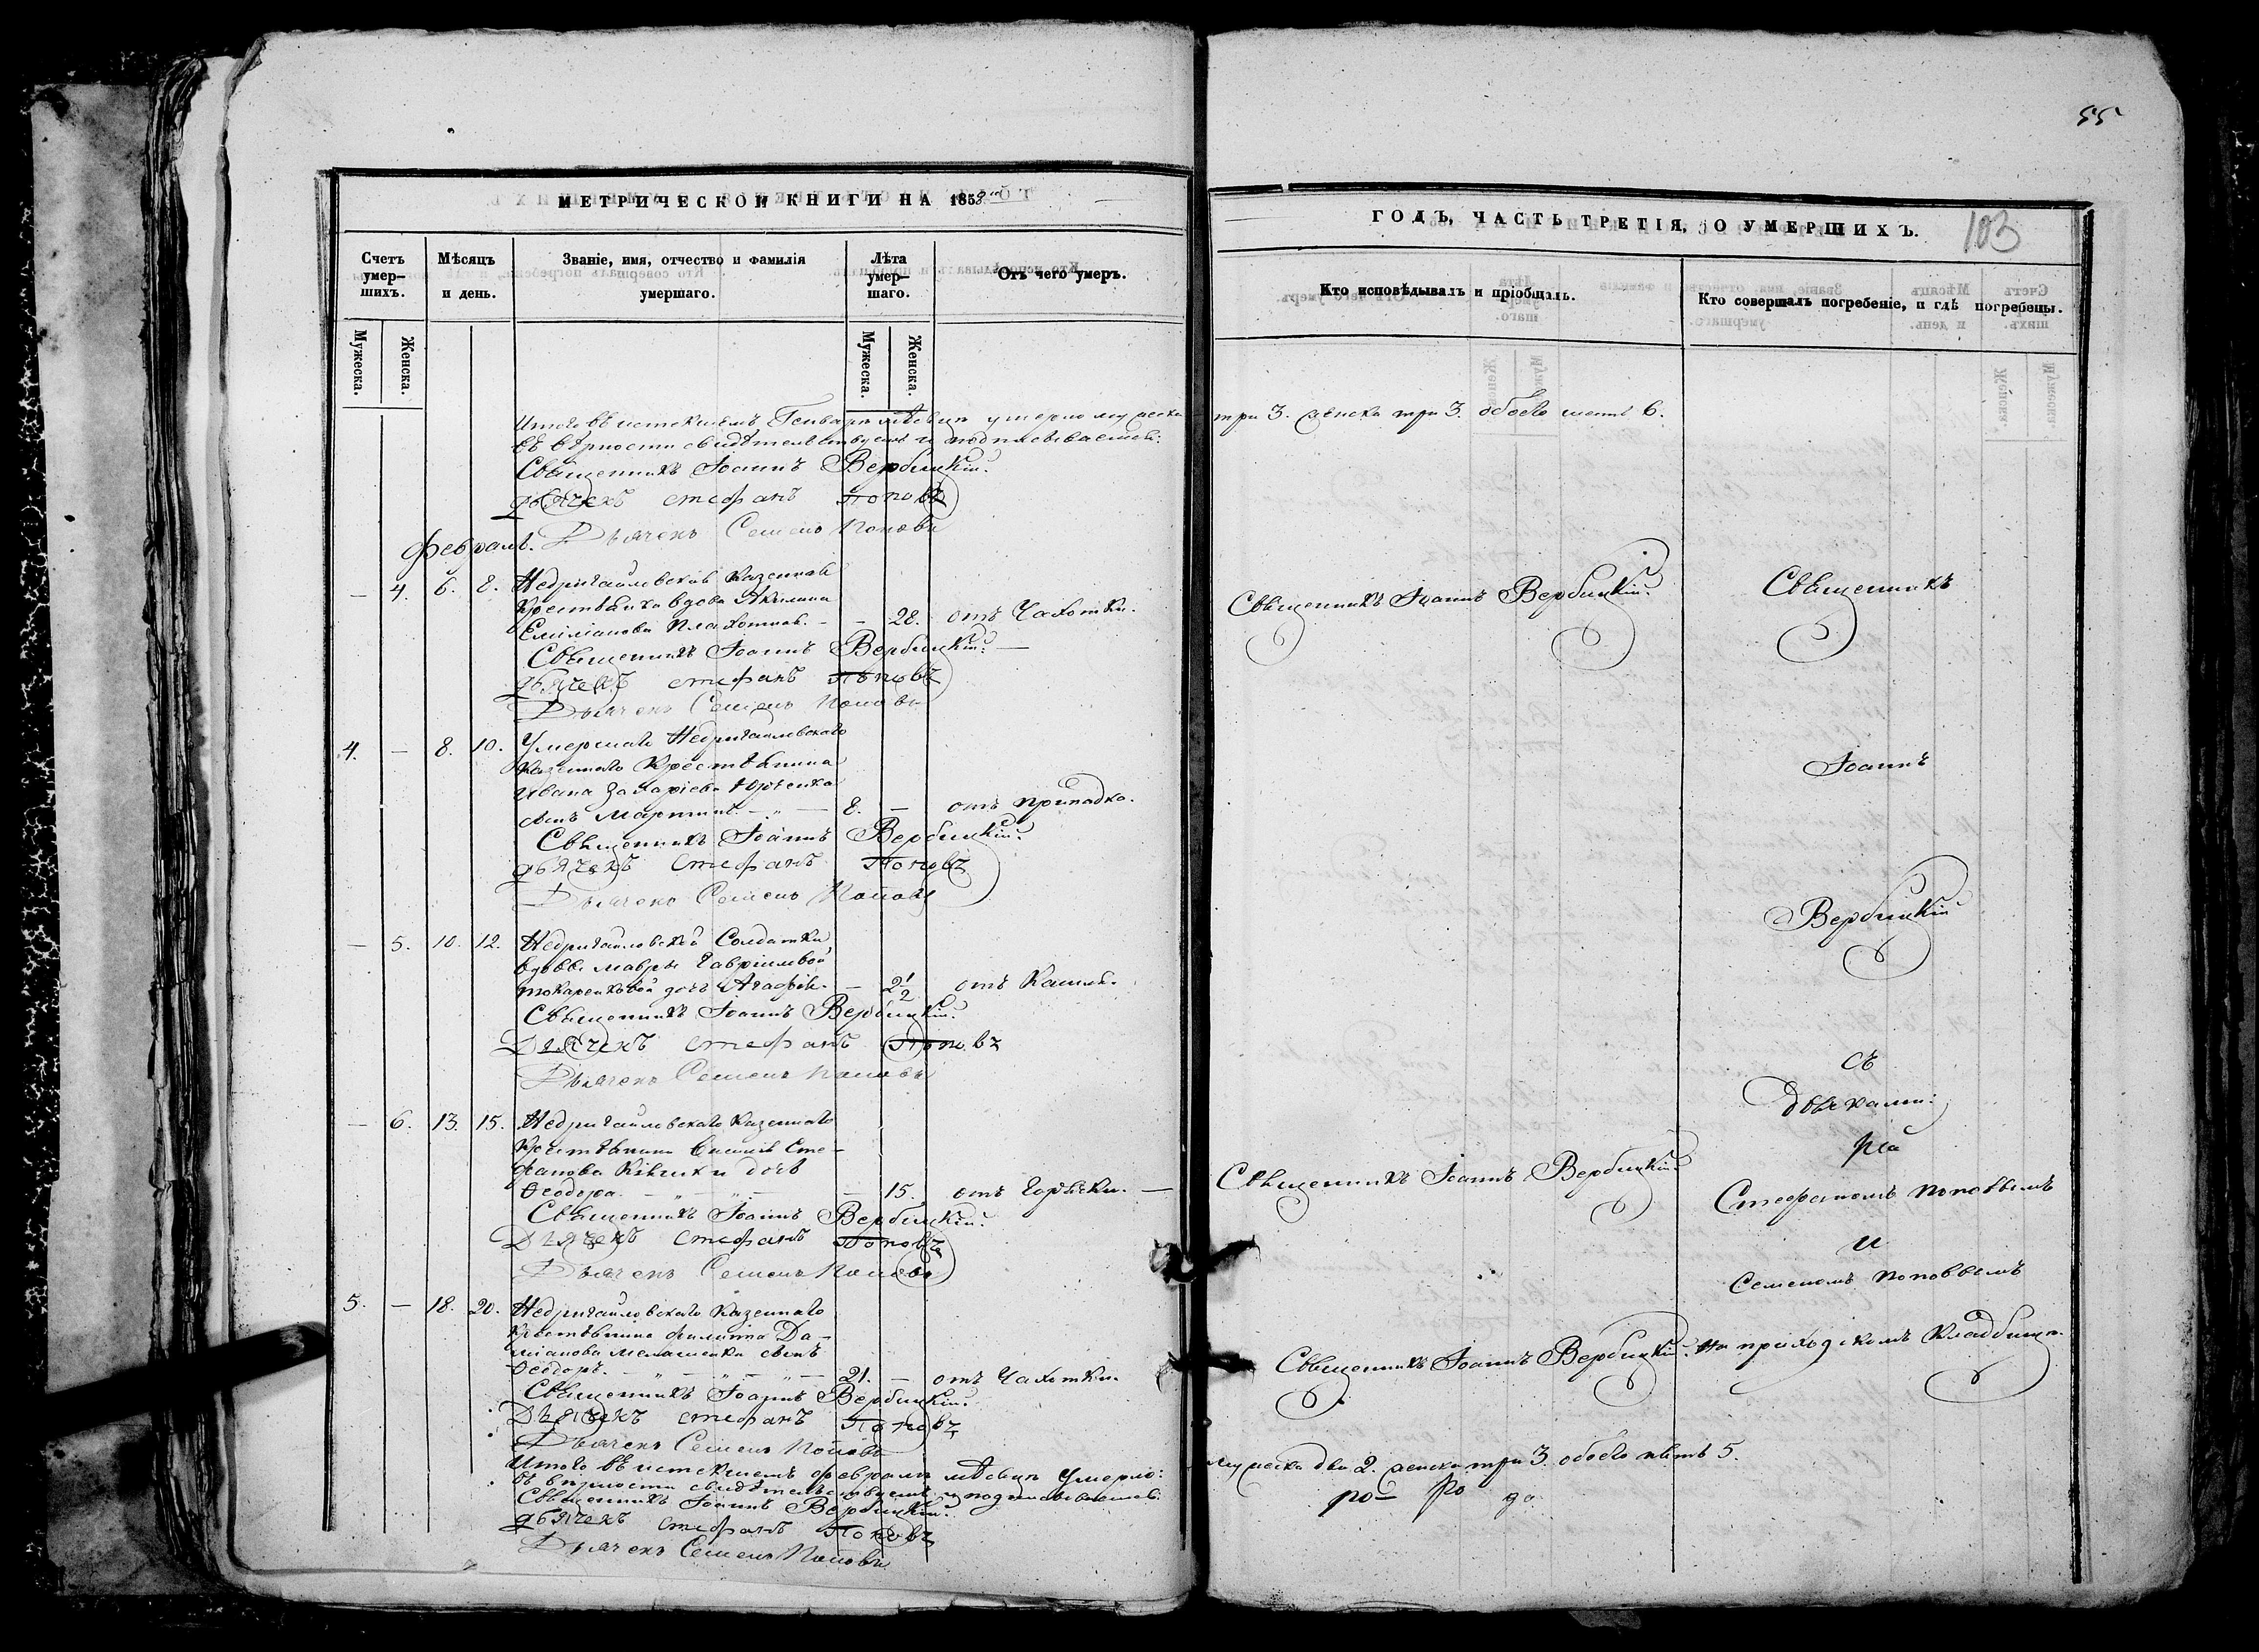 55
МЕТРИЧЕСКОЙ КНИГИ НА 1858 ой
ГОДЪ, ЧАСТЬ ТРЕТІЯ, О УМЕРШИХЪ.
103
Счетъ умер-шихъ.
Мѣсяцъ и день.
Званіе, имя, отчество и фамилія умершаго.
Лѣта умер-шаго.
Отъ чего умеръ.
Кто исповѣдывалъ и пріобщалъ.
Кто совершалъ погребеніе, и гдѣ погребены.
Мужеска.
Женска.
Мужеска.
Женска.
Итого въ истекшемъ Генварѣ мѣсяцѣ умерло мужеска три 3. женска три 3. обоего шесть 6.
въ вѣрности свидѣтельствуемъ и подписываемся:
Священникъ Іоаннъ Вербицкій.
дьячекъ стефанъ Поповъ
Дьячекъ Семенъ Поповъ
Февраль.
— 4. 6. 8. Недригайловская Казенная
Крестьянка вдова Акилина
Еміліанова Плахотная. — — 28. отъ Чахотки.
Священникъ Іоаннъ Вербицкій.
Священникъ
Священникъ Іоаннъ Вербицкій. —
дьячекъ стефанъ Поповъ
Дьячекъ Семенъ Поповъ
4. — 8. 10. Умершаго Недригайловскаго
Казеннаго Крестьянина
Ивана Захаріева Юрченка
сынъ Мартинъ. — 8. — отъ припадка.
Іоаннъ
Священникъ Іоаннъ Вербицкій.
дьячекъ стефанъ Поповъ
Дьячекъ Семенъ Поповъ
Вербицкій
— 5. 10. 12. Недригайловской Солдатки
вдовы Мавры Гавріиловой
Токаренковой дочь Агафія. — 2 1/2 отъ Кашля.
Священникъ Іоаннъ Вербицкій.
Дьячекъ стефанъ Поповъ
Дьячекъ Семенъ Поповъ
съ
дьячками:
— 6. 13. 15. Недригайловскаго Казеннаго
Крестьянина Сте-
фанова дочь
Феодора. — — 15. отъ Горячки. —
Священникъ Іоаннъ Вербицкій.
Стефаномъ Поповымъ
Священникъ Іоаннъ Вербицкій.
Дьячекъ стефанъ Поповъ
Дьячекъ Семенъ Поповъ
и
Семеномъ Поповымъ
5. — 18. 20. Недригайловскаго Казеннаго
Крестьянина Филиппа Да-
міанова сынъ
Феодоръ. — 21. — отъ Чахотки.
Священникъ Іоаннъ Вербицкій.
На приходскомъ Кладбищѣ.
Священникъ Іоаннъ Вербицкій.
Дьячекъ стефанъ Поповъ
Дьячекъ Семенъ Поповъ
Итого въ истекшемъ Февралѣ мѣсяцѣ Умерло: мужеска два 2. женска три 3. обоего пять 5.
въ вѣрности свидѣтельствуемъ и подписываемся:
Священникъ Іоаннъ Вербицкій.
дьячекъ стефанъ Поповъ
Дьячекъ Семенъ Поповъ